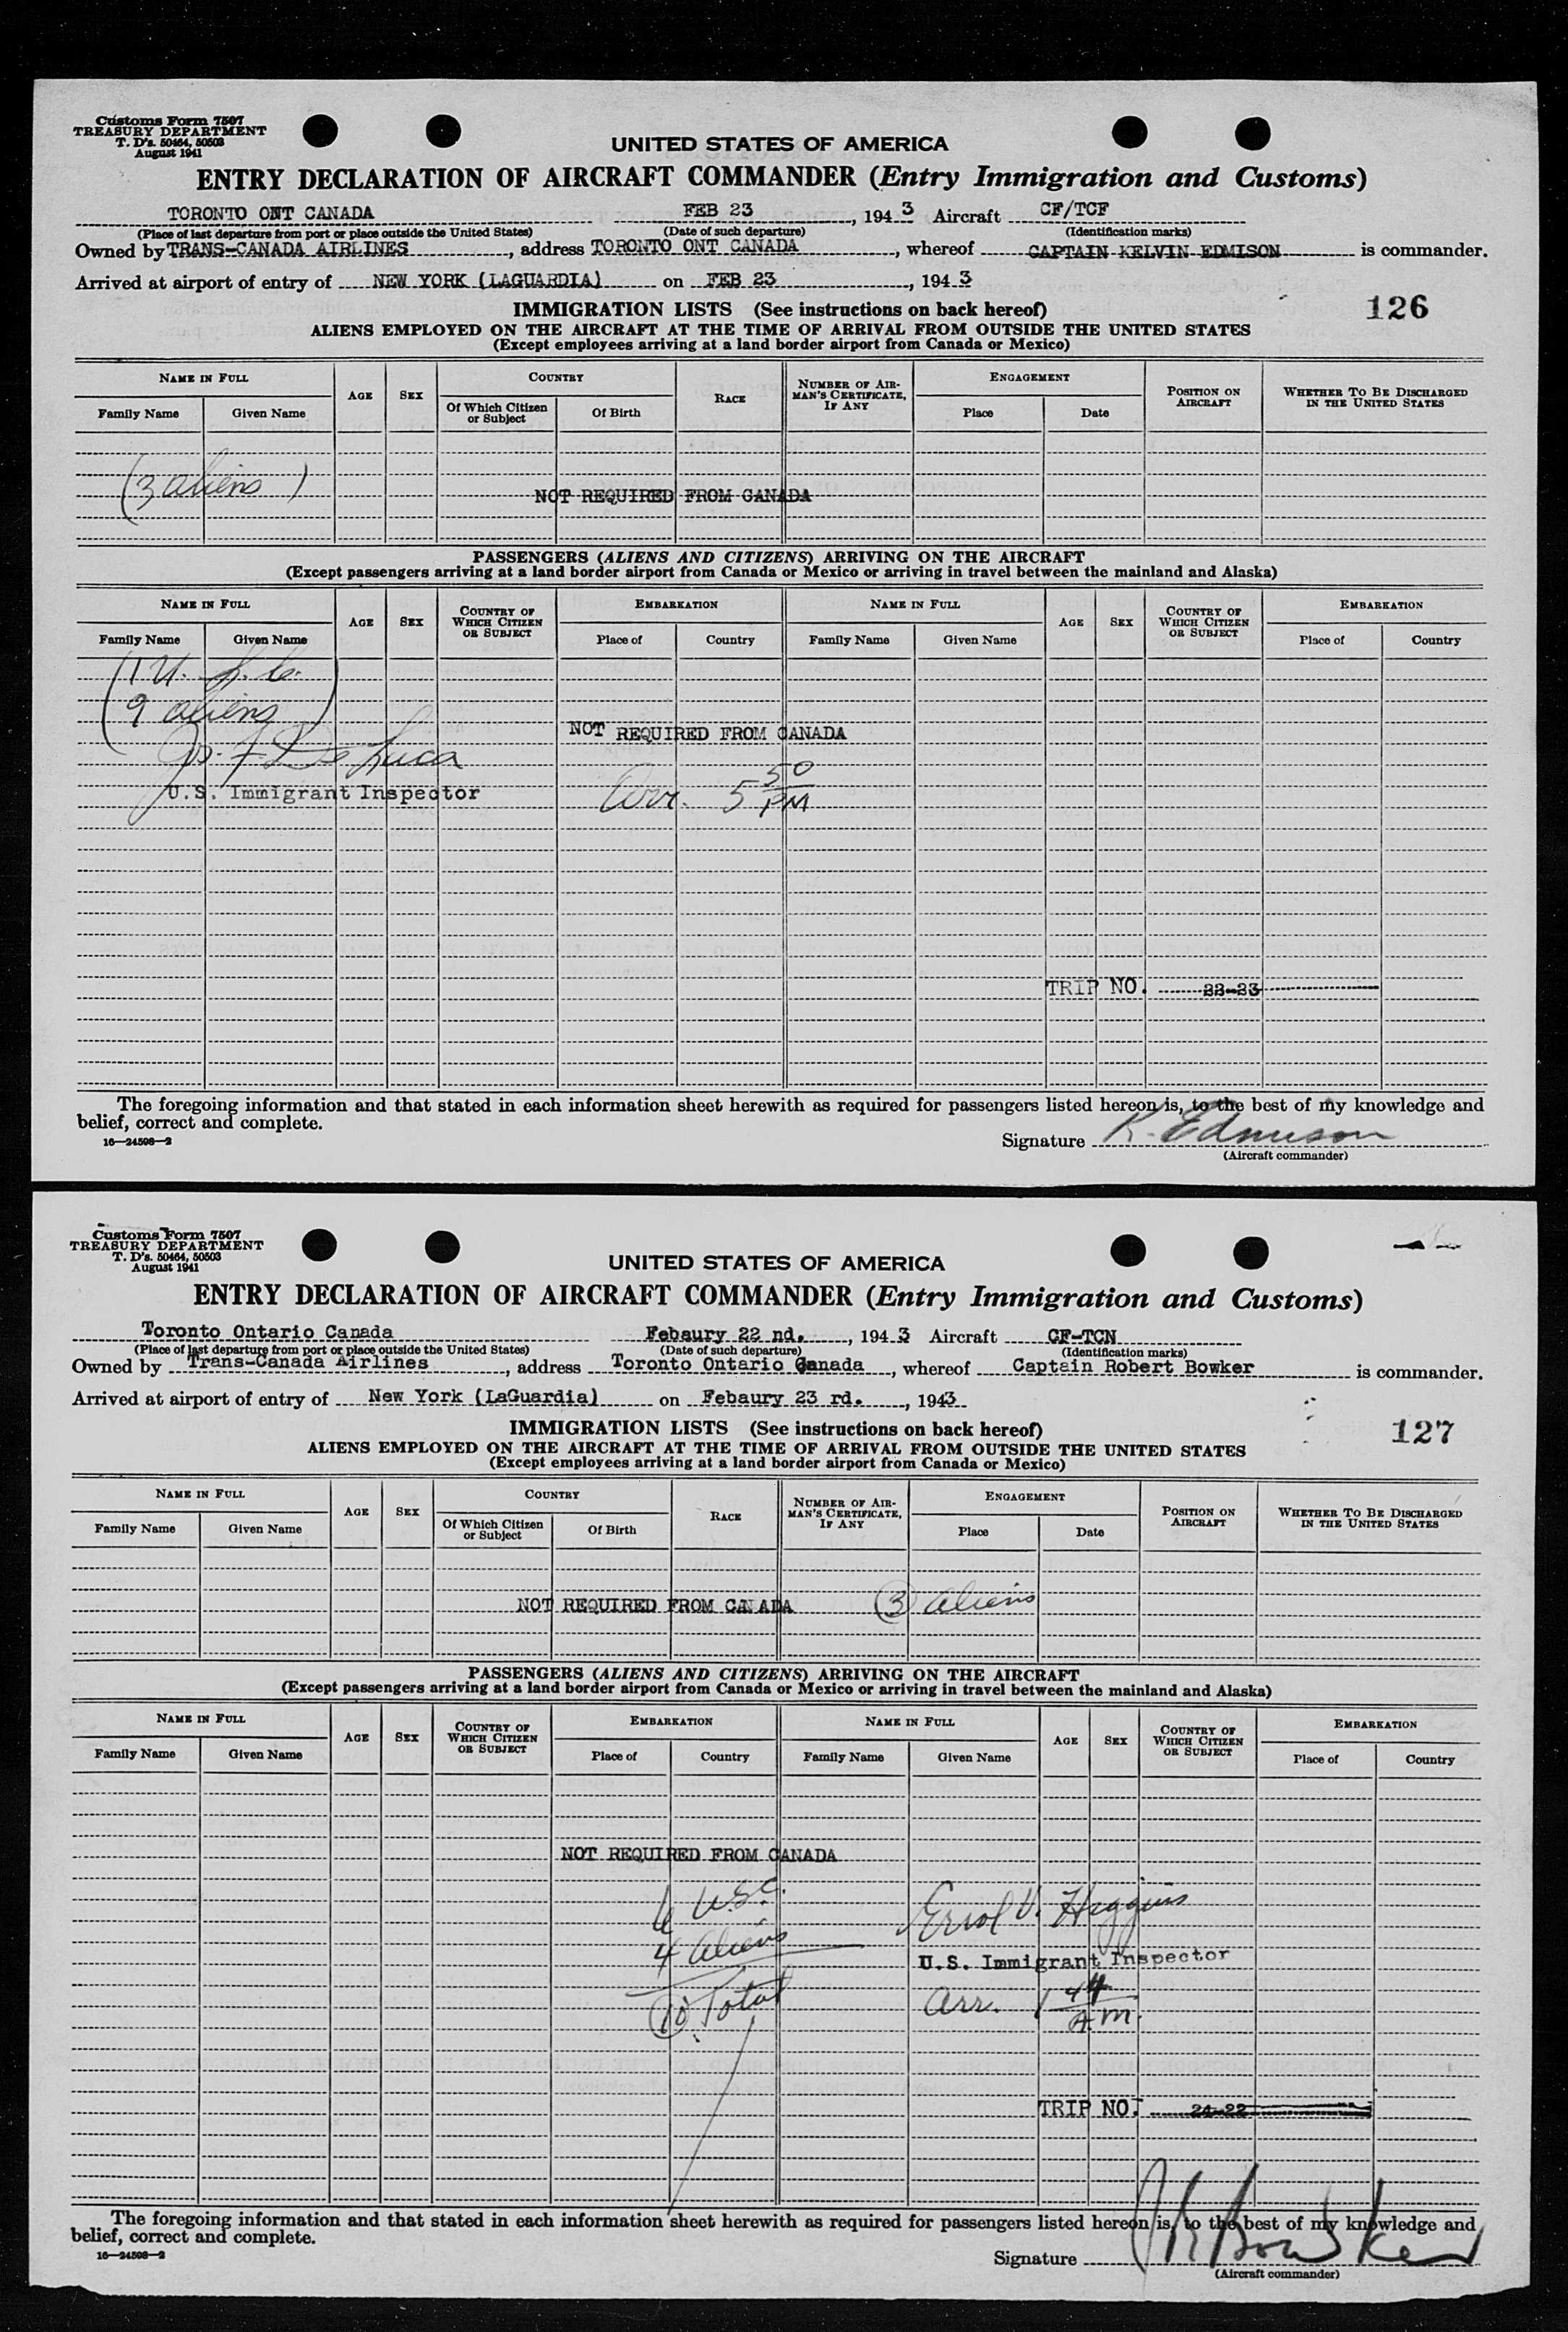 Customs Form 7507
TREASURY DEPARTMENT
T. D's. 50464, 50503
August 1941
UNITED STATES OF AMERICA
ENTRY DECLARATION OF AIRCRAFT COMMANDER (Entry Immigration and Customs)
TORONTO ONT CANADA FEB 23, 1943 Aircraft CF/TCF
(Place of last departure from port or place outside the United States) (Date of such departure) (Identification marks)
Owned by TRANS-CANADA AIRLINES, address TORONTO ONT CANADA, whereof CAPTAIN KELVIN EDMISON is commander.
Arrived at airport of entry of NEW YORK (LAGUARDIA) on FEB 23, 1943
IMMIGRATION LISTS (See instructions on back hereof) 126
ALIENS EMPLOYED ON THE AIRCRAFT AT THE TIME OF ARRIVAL FROM OUTSIDE THE UNITED STATES
(Except employees arriving at a land border airport from Canada or Mexico)
NAME IN FULL AGE SEX COUNTRY RACE NUMBER OF AIRMAN'S CERTIFICATE, IF ANY ENGAGEMENT POSITION ON AIRCRAFT WHETHER TO BE DISCHARGED IN THE UNITED STATES
Family Name Given Name Of Which Citizen or Subject Of Birth Place Date
(3 aliens) NOT REQUIRED FROM CANADA
PASSENGERS (ALIENS AND CITIZENS) ARRIVING ON THE AIRCRAFT
(Except passengers arriving at a land border airport from Canada or Mexico or arriving in travel between the mainland and Alaska)
NAME IN FULL AGE SEX COUNTRY OF WHICH CITIZEN OR SUBJECT EMBARKATION NAME IN FULL AGE SEX COUNTRY OF WHICH CITIZEN OR SUBJECT EMBARKATION
Family Name Given Name Place of Country Family Name Given Name Place of Country
(1 U. S. C.
9 aliens)
NOT REQUIRED FROM CANADA
Jos. F. De Luca
U.S. Immigrant Inspector Arr. 5 50 PM
TRIP NO. 22-23
The foregoing information and that stated in each information sheet herewith as required for passengers listed hereon is, to the best of my knowledge and
belief, correct and complete.
16—24598—2
Signature K. Edmison
(Aircraft commander)
Customs Form 7507
TREASURY DEPARTMENT
T. D's. 50464, 50503
August 1941
UNITED STATES OF AMERICA
ENTRY DECLARATION OF AIRCRAFT COMMANDER (Entry Immigration and Customs)
Toronto Ontario Canada Febaury 22 nd., 1943 Aircraft CF-TCN
(Place of last departure from port or place outside the United States) (Date of such departure) (Identification marks)
Owned by Trans-Canada Airlines, address Toronto Ontario Canada, whereof Captain Robert Bowker is commander.
Arrived at airport of entry of New York (LaGuardia) on Febaury 23 rd., 1943
IMMIGRATION LISTS (See instructions on back hereof) 127
ALIENS EMPLOYED ON THE AIRCRAFT AT THE TIME OF ARRIVAL FROM OUTSIDE THE UNITED STATES
(Except employees arriving at a land border airport from Canada or Mexico)
NAME IN FULL AGE SEX COUNTRY RACE NUMBER OF AIRMAN'S CERTIFICATE, IF ANY ENGAGEMENT POSITION ON AIRCRAFT WHETHER TO BE DISCHARGED IN THE UNITED STATES
Family Name Given Name Of Which Citizen or Subject Of Birth Place Date
NOT REQUIRED FROM CANADA 3 aliens
PASSENGERS (ALIENS AND CITIZENS) ARRIVING ON THE AIRCRAFT
(Except passengers arriving at a land border airport from Canada or Mexico or arriving in travel between the mainland and Alaska)
NAME IN FULL AGE SEX COUNTRY OF WHICH CITIZEN OR SUBJECT EMBARKATION NAME IN FULL AGE SEX COUNTRY OF WHICH CITIZEN OR SUBJECT EMBARKATION
Family Name Given Name Place of Country Family Name Given Name Place of Country
NOT REQUIRED FROM CANADA
6 U.S.C. Errol V. Higgins
4 aliens U.S. Immigrant Inspector
10 Total Arr. 1 44 A.M.
TRIP NO. 24-22
The foregoing information and that stated in each information sheet herewith as required for passengers listed hereon is, to the best of my knowledge and
belief, correct and complete.
16—24598—2
Signature R Bowker
(Aircraft commander)